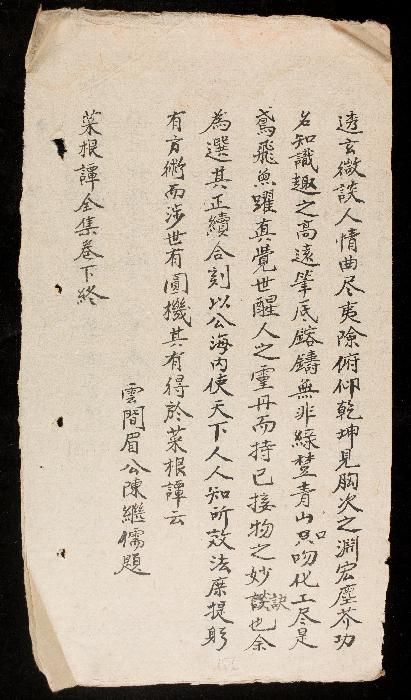 透玄微談人情曲尽夷險俯仰乾坤見胸次之淵宏塵芥功
名知識趣之高遠筆底鎔鑄無非綠埜青山只口吻化工尽是
鳶飛魚躍真覺世醒人之霊丹而持己接物之妙談訣也余
為選其正續合刻以公海內使天下人人知所效法庶提躬
有方術而涉世有圓機其有得於菜根譚云
雲間眉公陳繼儒題
菜根譚全集卷下終